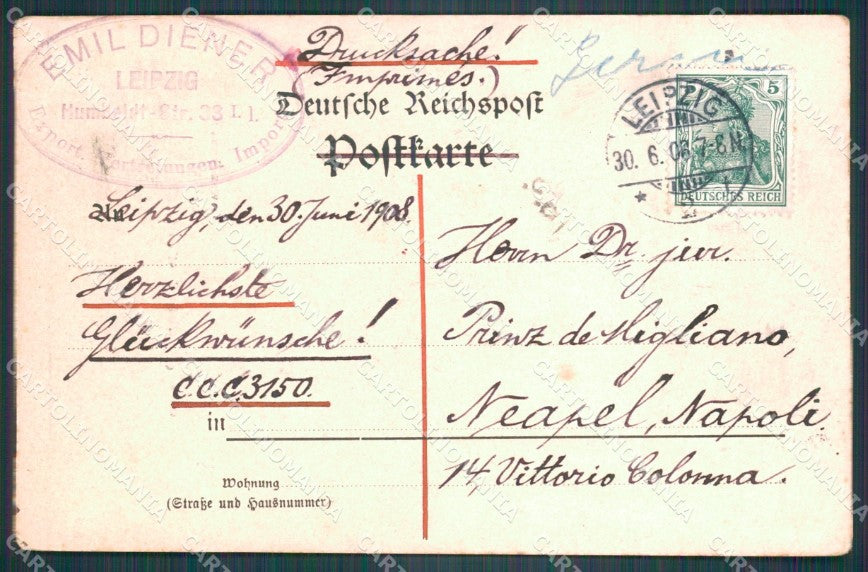 EMIL DIENER
LEIPZIG
Humboldt-Str. 33 I. l.
Export, Vertretungen, Import
Drucksache!
(Imprimés.)
Deutsche Reichspost
Postkarte
LEIPZIG
30. 6. 08. 7-8 N.
5
DEUTSCHES REICH
An
Leipzig, den 30. Juni 1908.
Herzlichste
Glückwünsche!
C.C.C. 3150.
in
Wohnung
(Straße und Hausnummer)
Herrn Dr. jur.
Prinz de Migliano,
Neapel, Napoli.
14, Vittorio Colonna.
CARTOLINOMANIA